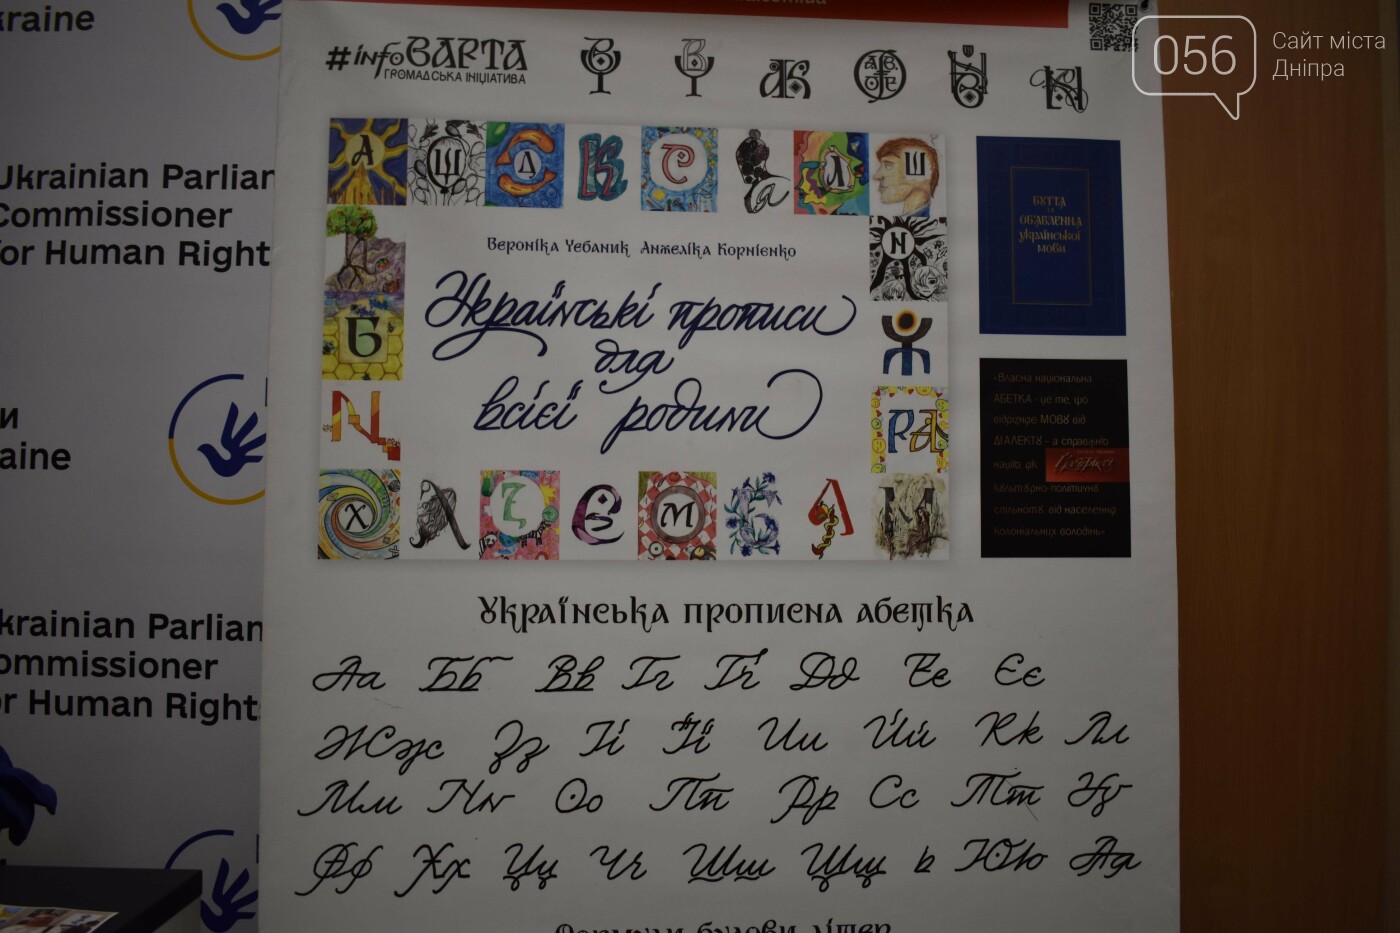 kraine
056
Сайт міста
Дніпра
#infoВАРТА
ГРОМАДСЬКА ІНІЦІАТИВА
Ukrainian Parlian
Commissioner
for Human Right
А Ш Д К С а Л Ш
Вероніка Чебаник Анжеліка Корнієнко
Українські прописи
для
всієї родини
N
Б
РА
Х Є М Л М
БУТТЯ
ОБЯВЛЕННЯ
української
мови
«Власна національна
АБЕТКА - це те, що
відрізняє МОВУ від
ДІАЛЕКТУ - а справжню
націю, як
культурно-політичну
спільноту, від населення
колоніальних володінь»
и
aine
Українська прописна абетка
Аа Бб Вв Гг Ґґ Дд Ее Єє
Жж Зз Іі Її Ии Йй Кк Лл
Мм Nn Оо Пп Рр Сс Тт Уу
Фф Хх Цц Чч Шш Щщ ь Юю Яя
krainian Parlian
ommissioner
or Human Right
Формули будови літер